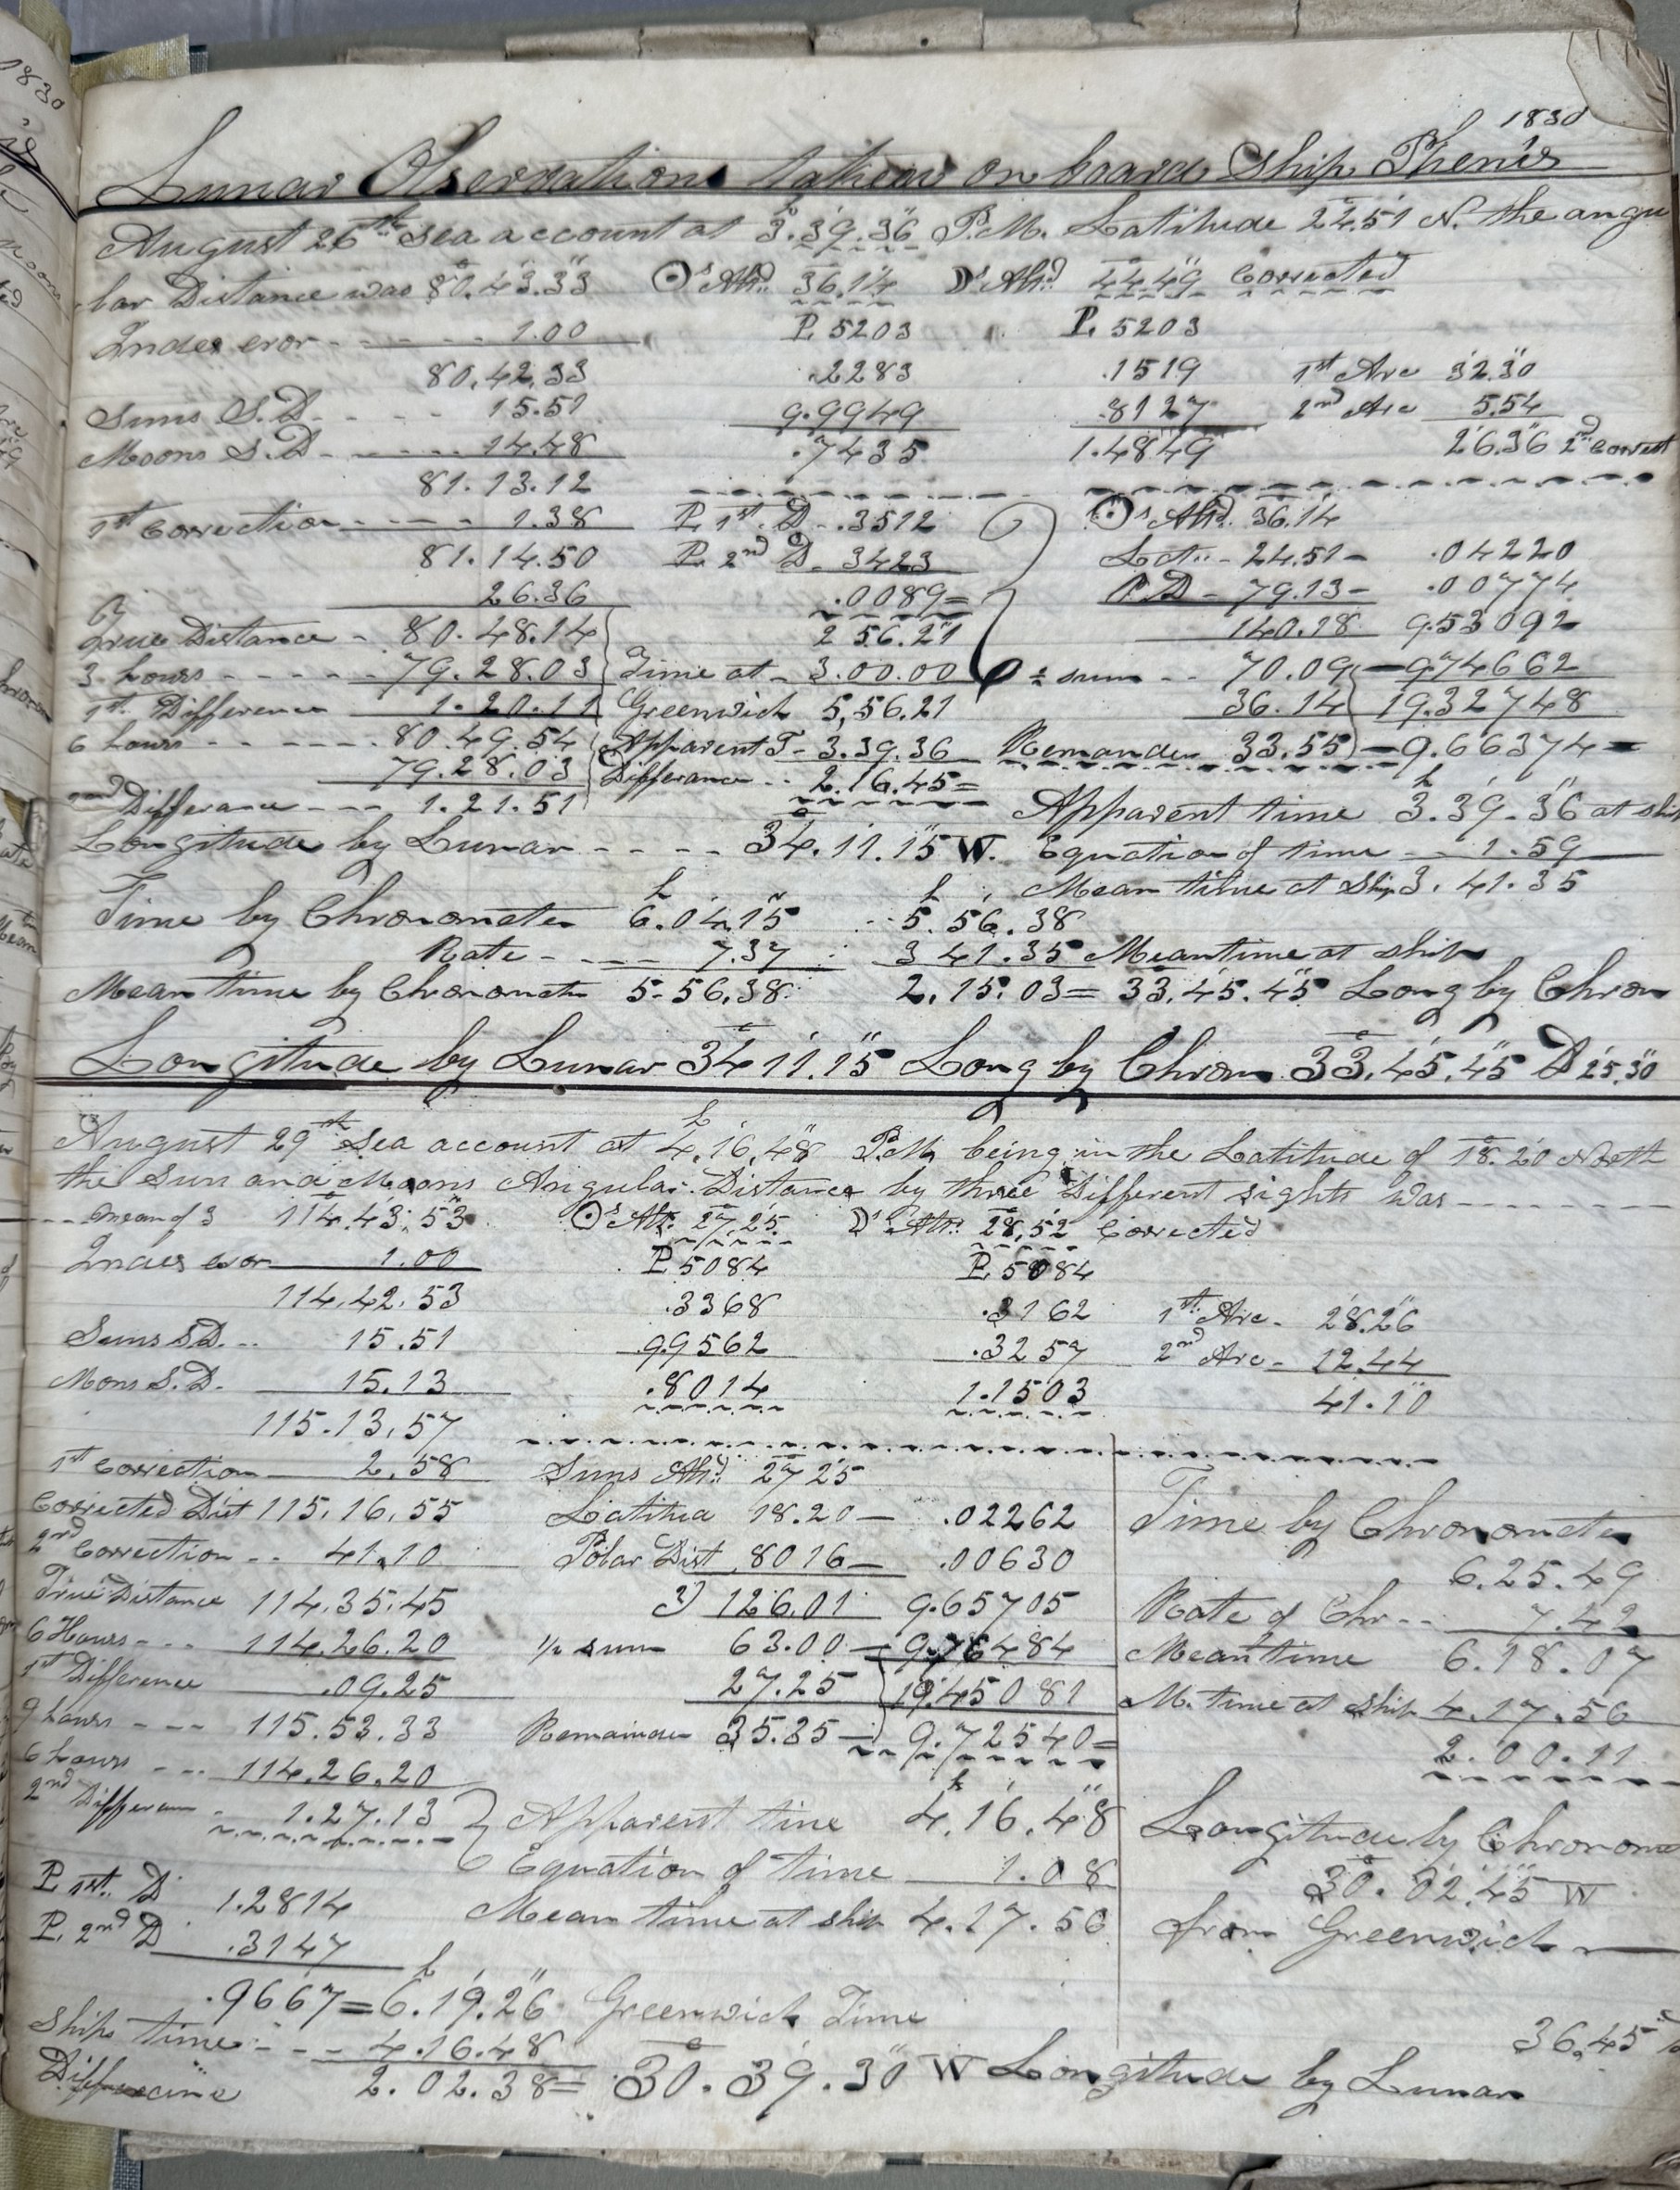 1830
Lunar Obserations taken on board Ship Phenix
August 26th Sea account at 3.39.36 P.M. Latitude 24.51 N. the angu
lar Distance was 80.43.33 ☉s Altd. 36.14 ☽s Altd. 44.49 Corrected
Index eror 1.00 P. 5203 P. 5203
80.42.33 .2283 .1519 1st Arc 32.30
Suns S.D. 15.51 9.9949 .8127 2nd Arc 5.54
Moons S.D. 14.48 .7435 1.4849 26.36 2nd Correct
81.13.12
1st Correction 1.38 P. 1st D .3512 ☉s Altd. 36.14
81.14.50 P. 2nd D. 3423 Lat. 24.51 .04220
26.36 .0089= P.D 79.13 .00774
True Distance 80.48.14 2 56.21 140.18 9.53092
3 hours 79.28.03 Time at 3.00.00 ½ sum 70.09 9.74662
1st Difference 1.20.11 Greenwich 5,56.21 36.14 19.32748
6 hours 80.49.54 Apparent T 3.39.36 Remander 33.55 9.66374=
79.28.03 Differance 2.16.45=
2nd Differance 1.21.51 Apparent time 3.39.36 at ship
Longitude by Lunar 34.11.15 W. Equation of time 1.59
Mean time at Ship 3.41.35
Time by Chronometer 6.04.15 5.56.38
Rate 7.37 3 41.35 Meantime at ship
Mean time by Chronomete 5.56.38 2.15.03= 33.45.45 Long by Chron
Longitude by Lunar 34 11.15 Long by Chron 33.45.45 D 25.30
August 29th Sea account at 4.16.48 P.M. being in the Latitude of 18.20 North
the Sun and Moons Angular Distance by three Different sights was
mean of 3 114.43.53 ☉s Alt. 27.25 ☽s Altd. 28,52 Corrected
Index eror 1.00 P. 5084 P. 5084
114.42.53 .3368 .3162 1st Arc 28.26
Suns S.D. 15.51 9.9562 .3257 2nd Arc 12.44
Mons S.D. 15.13 .8014 1.1503 41.10
115.13.57
1st Correction 2.58 Suns Altd. 27 25
Corrected Dist 115.16.55 Latitud 18.20 .02262 Time by Chronomete
2nd Correction 41.10 Polar Dist 80 16 .00630 6.25.49
True Distance 114.35.45 2) 126.01 9.65705 Rate of Chr 7.42
6 Hours 114.26.20 ½ sum 63.00 9.76484 Meantime 6.18.07
1st Difference .09.25 27.25 19.45081 M. time at ship 4.17.56
9 hours 115.53.33 Remainder 35.35 9.72540= 2.00.11
6 hours 114.26.20
2nd Differan 1.27.13 Apparent time 4.16.48 Longitude by Chronome
Equation of time 1.08 30.02.45 W
P. 1st D 1.2814 Mean time at ship 4.17.56 from Greenwich
P. 2nd D .3147
.9667=6.19.26 Greenwich Time
Ships time 4.16.48 36.45
Differance 2.02.38= 30.39.30 W Longitude by Lunar